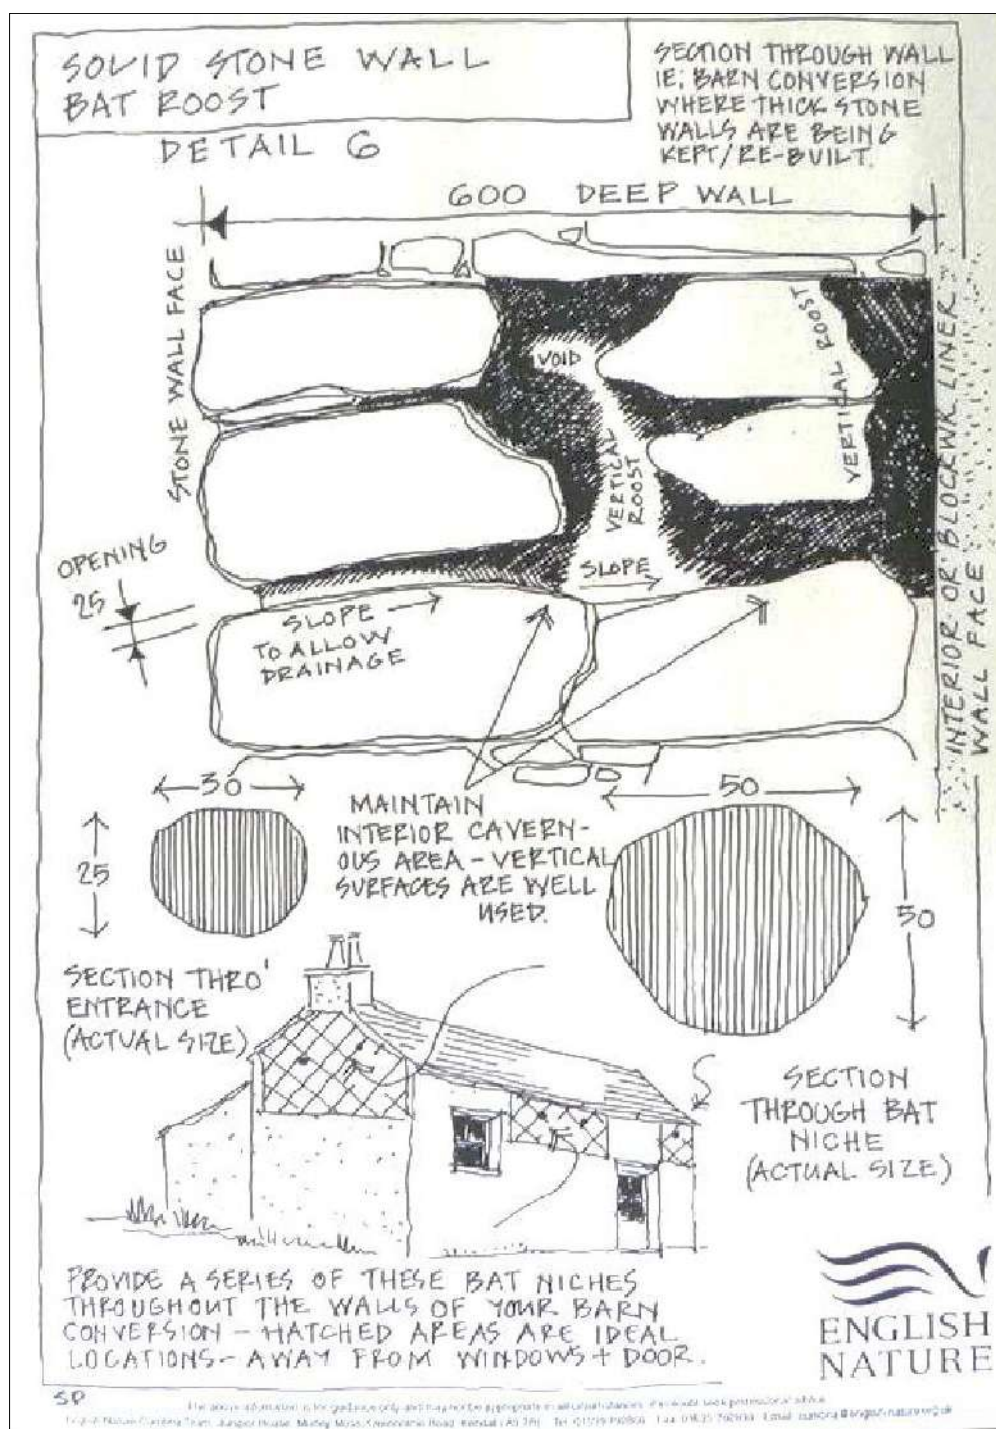 SOLID STONE WALL
BAT ROOST
DETAIL 6
SECTION THROUGH WALL
IE: BARN CONVERSION
WHERE THICK STONE
WALLS ARE BEING
KEPT/RE-BUILT.
600 DEEP WALL
STONE WALL FACE
VOID
VERTICAL ROOST
VERTICAL
ROOST
INTERIOR OR BLOCKWK LINER
WALL FACE
OPENING
25
SLOPE
SLOPE
TO ALLOW
DRAINAGE
30
25
MAINTAIN
INTERIOR CAVERN-
OUS AREA - VERTICAL
SURFACES ARE WELL
USED.
50
50
SECTION THRO'
ENTRANCE
(ACTUAL SIZE)
SECTION
THROUGH BAT
NICHE
(ACTUAL SIZE)
PROVIDE A SERIES OF THESE BAT NICHES
THROUGHOUT THE WALLS OF YOUR BARN
CONVERSION - HATCHED AREAS ARE IDEAL
LOCATIONS - AWAY FROM WINDOWS + DOOR.
ENGLISH
NATURE
SP
The above information is for guidance only and may not be appropriate in all circumstances.